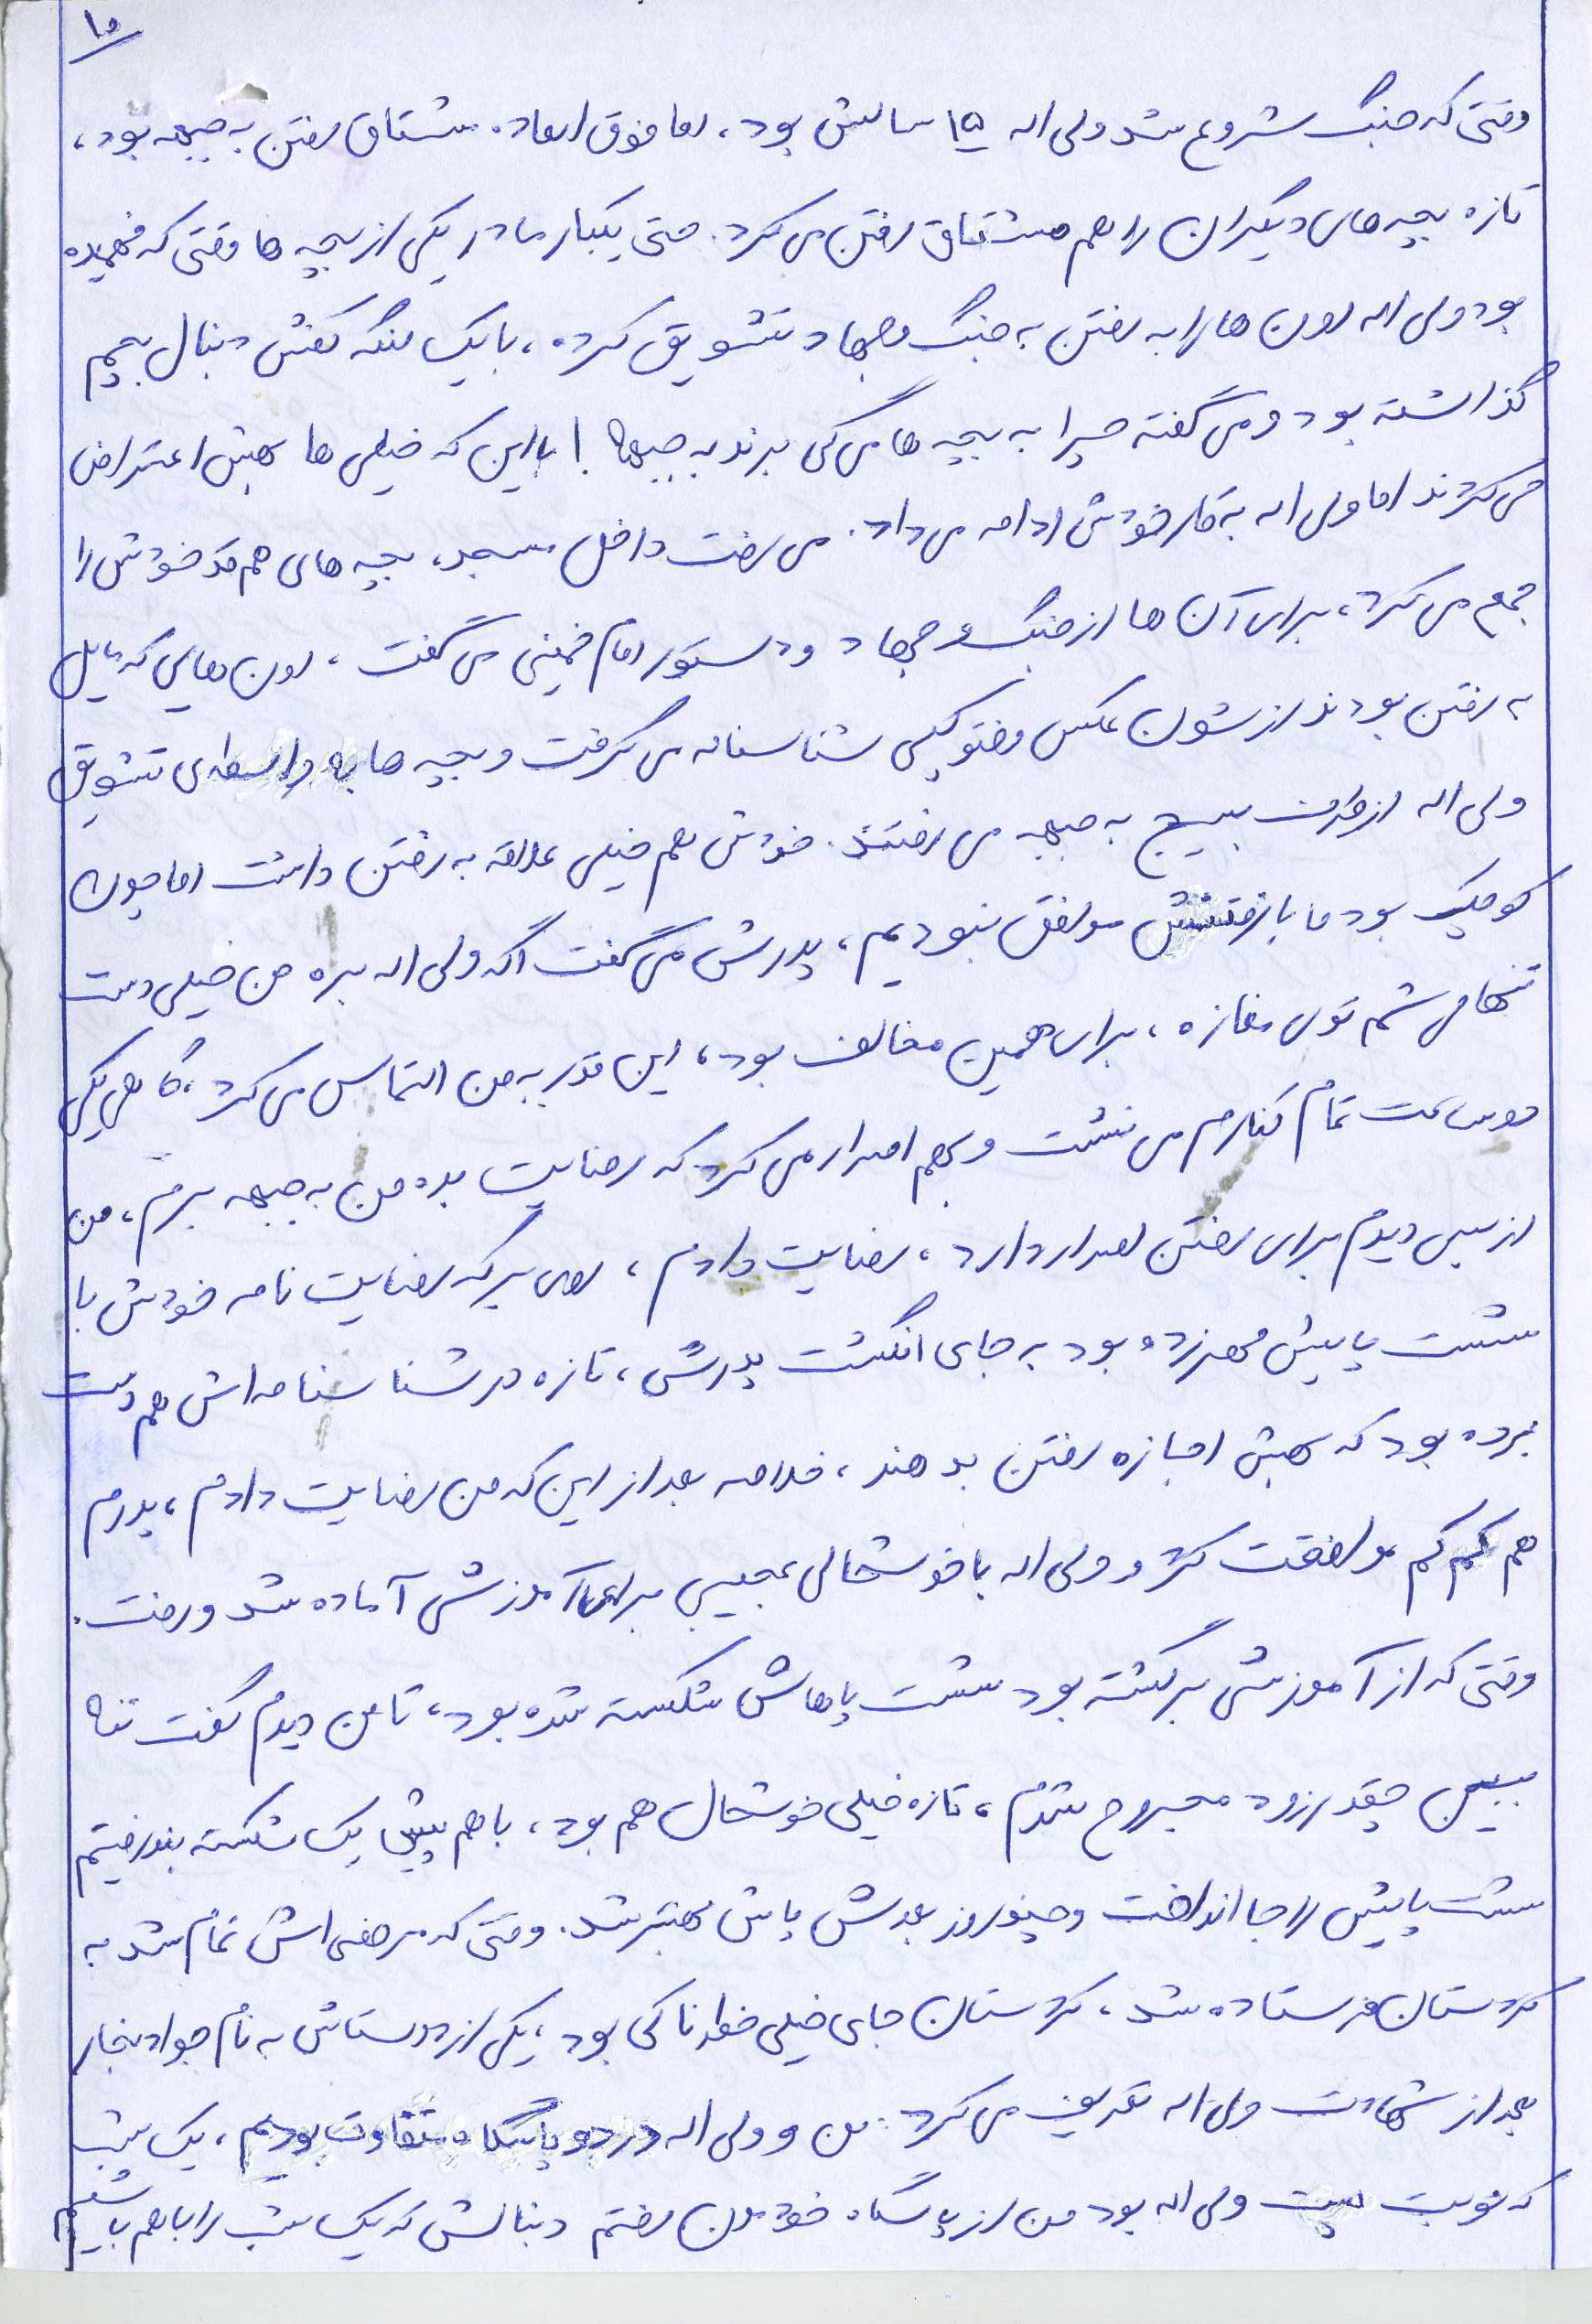 ۱۵
وقتی که جنگ شروع شد ولی اله ۱۵ سالش بود، اما فوق العاده مشتاق رفتن به جبهه بود،
تازه بچه های دیگران را هم مشتاق رفتن می کرد. حتی یکبار مادر یکی از بچه ها وقتی که فهمیده
بود ولی اله اون ها را به رفتن به جنگ و جهاد تشویق کرده، با یک لنگه کفش دنبال بچم
گذاشته بود و می گفته چرا به بچه ها می گی برند به جبهه! با این که خیلی ها بهش اعتراض
می کردند اما ولی اله به کار خودش ادامه می داد. می رفت داخل مسجد، بچه های هم قد خودش را
جمع می کرد، برای آن ها از جنگ و جهاد و دستور امام خمینی می گفت، اون هایی که مایل
به رفتن بودند ازشون عکس و فتوکپی شناسنامه می گرفت و بچه ها به واسطه ی تشویق
ولی اله از طرف بسیج به جبهه می رفتند. خودش هم خیلی علاقه به رفتن داشت اما چون
کوچیک بود ما با رفتنش موافق نبودیم، پدرش می گفت اگه ولی اله بره من خیلی دست
تنها می شم توی مغازه، برای همین مخالف بود، این قدر به من التماس می کرد، گاهی یکی
دو ساعت تمام کنارم می نشست و بهم اصرار می کرد که رضایت بده من به جبهه برم، من
از بس دیدم برای رفتن اصرار دارد، رضایت دادم، روی برگه رضایت نامه خودش با
شست پاییش مهر زده بود به جای انگشت پدرش، تازه در شناسنامه اش هم دست
برده بود که بهش اجازه رفتن بدهند، خلاصه بعد از این که من رضایت دادم، پدرم
هم کم کم موافقت کرد و ولی اله با خوشحالی عجیبی برای آموزش آماده شد و رفت.
وقتی که از آموزش برگشته بود شست پاهاش شکسته شده بود، تا من دیدم گفت ننه
ببین چقدر زود مجروح شدم، تازه خیلی خوشحال هم بود، با هم پیش یک شکسته بند رفتیم
شست پایش را جا انداخت و چند روز بعدش پاش بهتر شد. وقتی که مرخصی اش تمام شد به
کردستان فرستاده شد، کردستان جای خیلی خطرناکی بود، یکی از دوستاش به نام جواد نجار
بعد از شهادت ولی اله تعریف می کرد: من و ولی اله در دو پاسگاه متفاوت بودیم، یک شب
که نوبت پست ولی اله بود من از پاسگاه خودمون رفتم دنبالش که یک شب را با هم باشیم